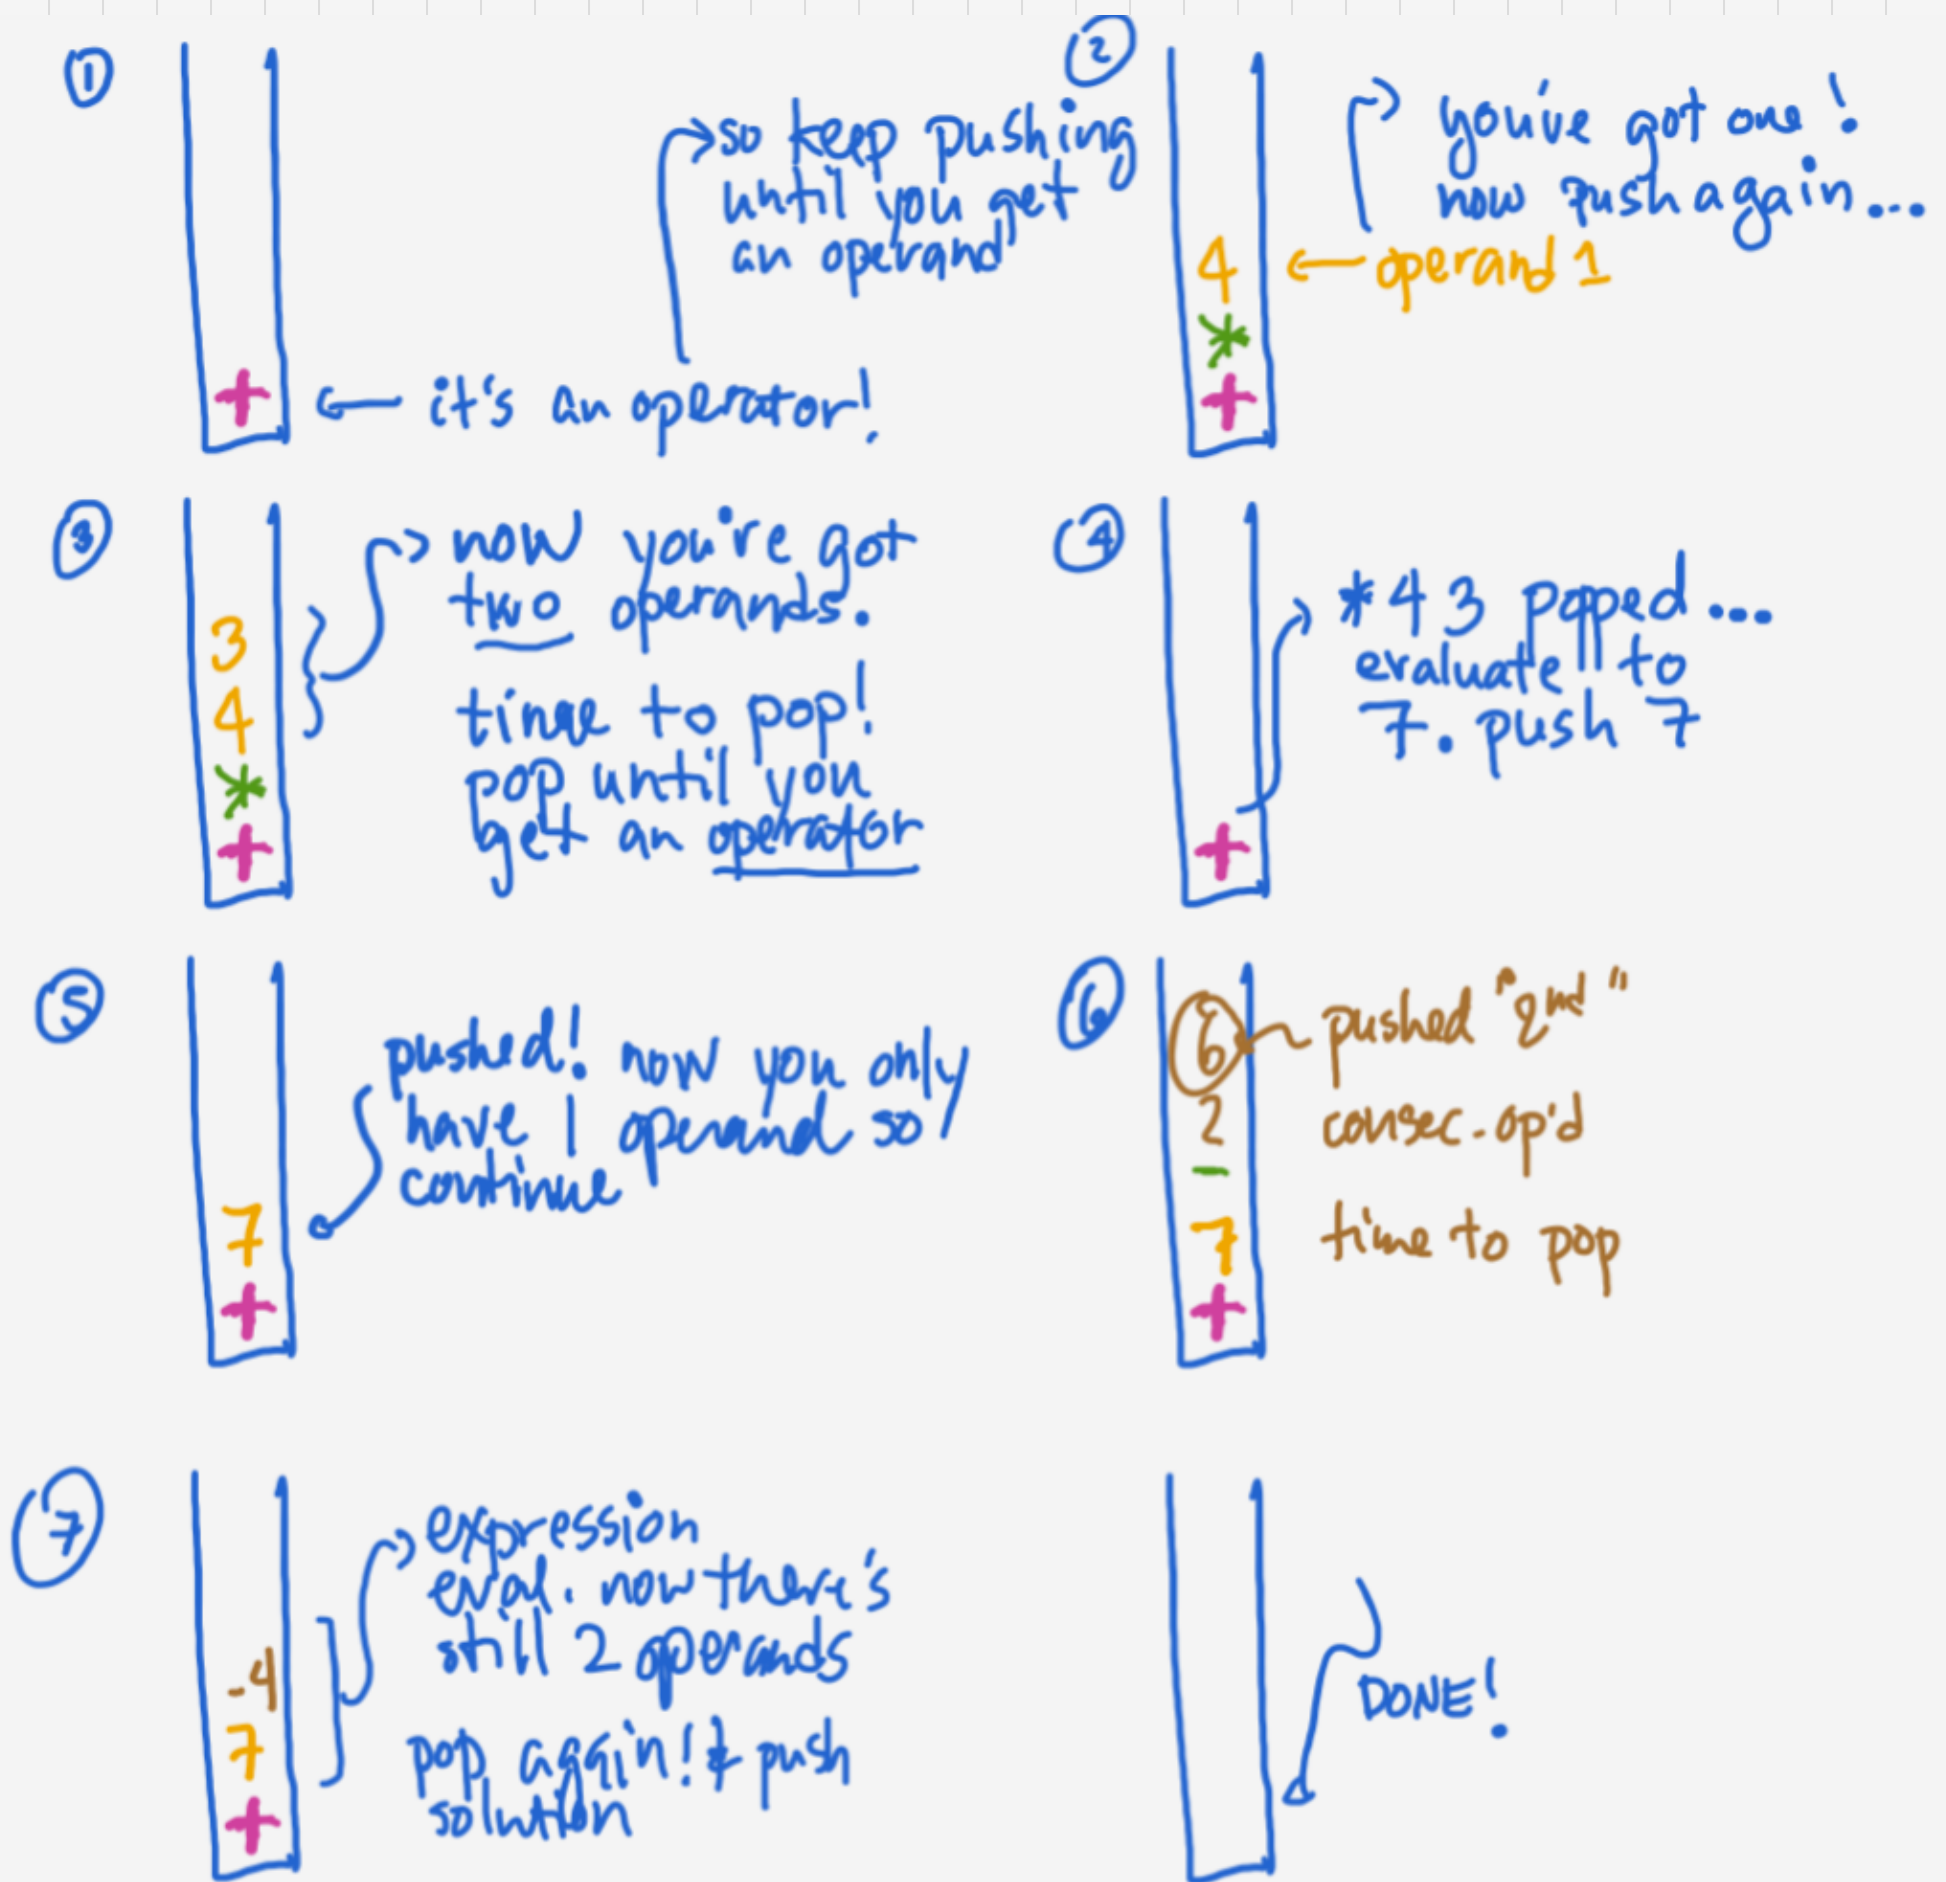 1
so keep pushing
until you get
an operand
+
it's an operator!
2
you've got one!
now push again...
4
operand 1
*
+
3
now you're got
two operands.
time to pop!
pop until you
get an operator
3
4
*
+
4
*43 popped...
evaluate to
7. push 7
+
5
pushed! now you only
have 1 operand so
continue
7
+
6
6
pushed "2nd"
2
consec. op'd
-
time to pop
7
+
7
expression
eval. now there's
still 2 operands
-4
7
pop again! & push
solution
+
DONE!